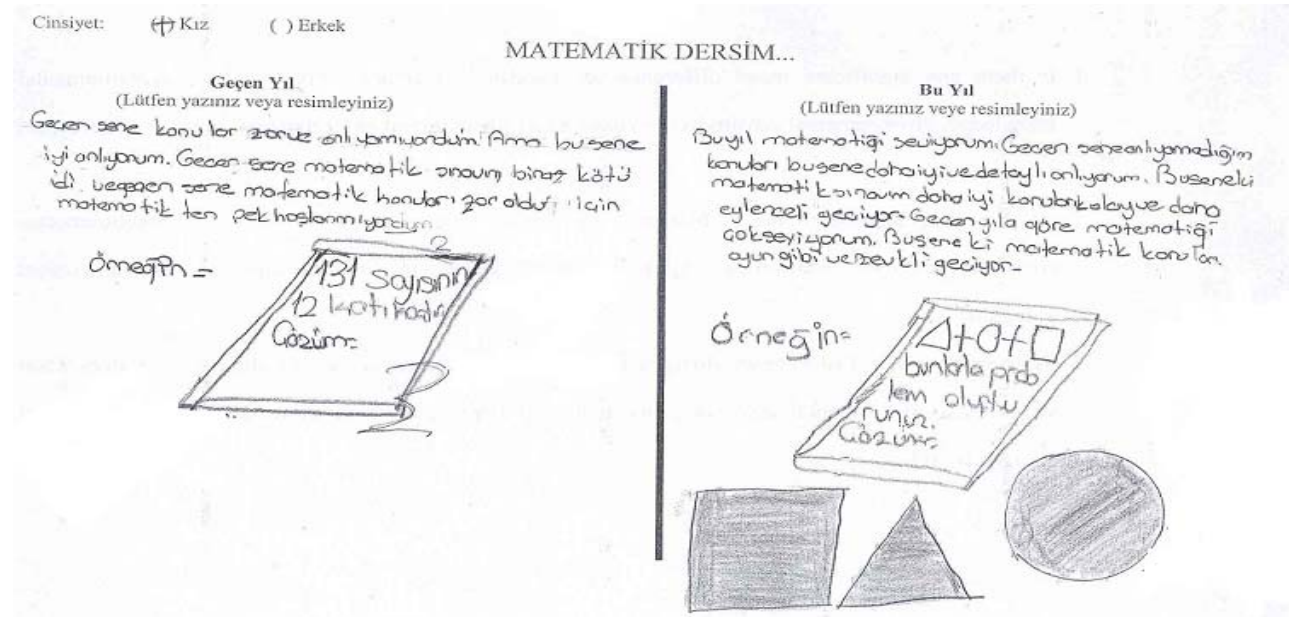 Cinsiyet: (+) Kız ( ) Erkek
MATEMATİK DERSİM...
Geçen Yıl
(Lütfen yazınız veya resimleyiniz)
Geçen sene konular zordu anlıyamıyordum. Ama bu sene
iyi anlıyorum. Geçen sene matematik sınavım biraz kötü
idi. ve geçen sene matematik konuları zor olduğu için
matematik ten pek hoşlanmıyordum
Örneğin =
131 sayısının
12 katı kaçtır
Çözüm=
Bu Yıl
(Lütfen yazınız veye resimleyiniz)
Bu yıl matematiği seviyorum. Geçen sene anlıyamadığım
konuları bu sene daha iyi ve detaylı anlıyorum. Bu seneki
matematik sınavım daha iyi konular kolay ve daha
eylenceli geçiyor. Geçen yıla göre matematiği
çok seviyorum. Bu sene ki matematik konuları
oyun gibi ve zevkli geçiyor.
Örneğin=
△+○+□
bunlarla prob
lem oluştu
runuz.
Çözüm=